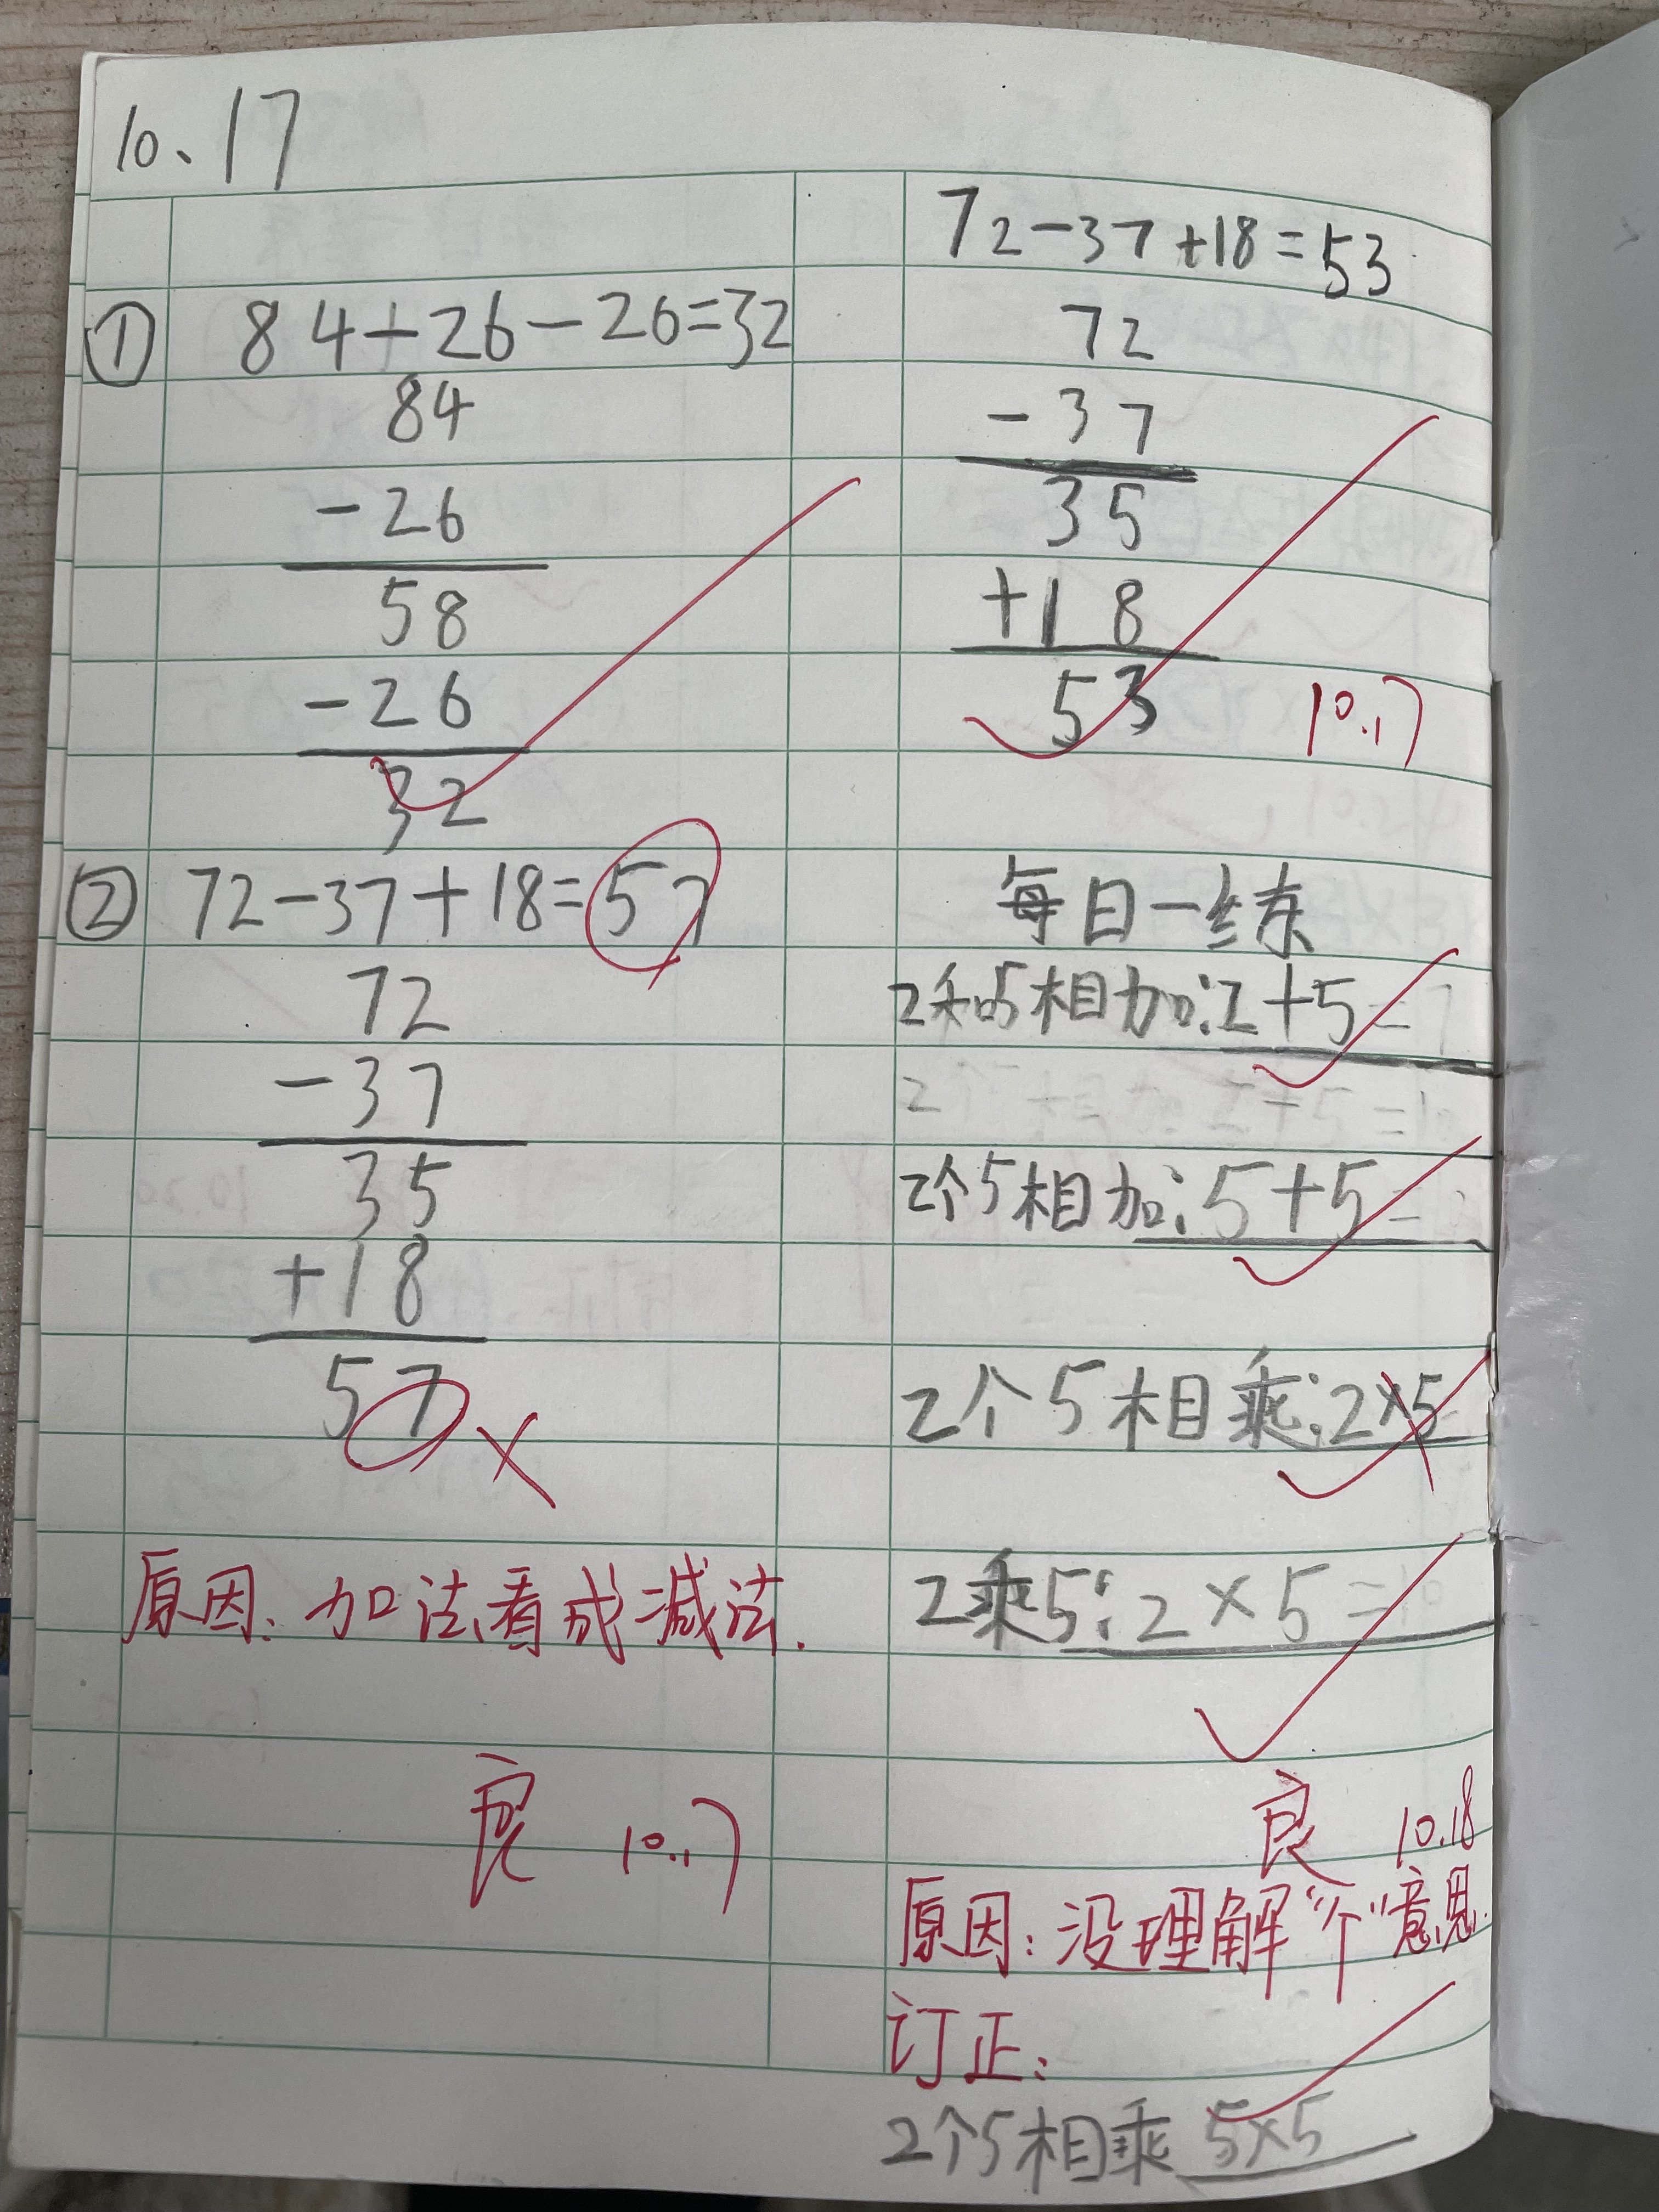 10、17
① 84+26-26=32
84
-26
58
-26
32
② 72-37+18=57
72
-37
35
+18
57
原因：加法看成减法.
良 10.17
72-37+18=53
72
-37
35
+18
53
10.17
每日一练
2和5相加：2+5=7
2个5相加：5+5=
2个5相乘：2×5=
2乘5：2×5=10
良 10.18
原因：没理解“个”意思.
订正：
2个5相乘 5×5